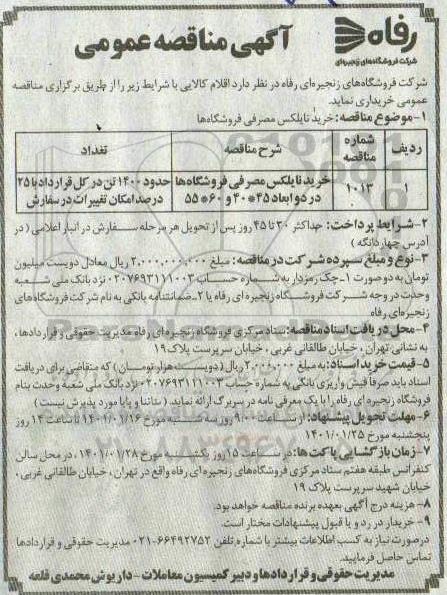 رفاه
شرکت فروشگاه‌های زنجیره‌ای
آگهی مناقصه عمومی
شرکت فروشگاه‌های زنجیره‌ای رفاه در نظر دارد اقلام کالایی با شرایط زیر را از طریق برگزاری مناقصه
عمومی خریداری نماید.
۱-موضوع مناقصه: خرید نایلکس مصرفی فروشگاه‌ها
ردیف شماره مناقصه شرح مناقصه تعداد
۱ ۱۰۱۳ خرید نایلکس مصرفی فروشگاه‌ها حدود ۱۴۰۰ تن در کل قرارداد با ۲۵
در دو ابعاد ۴۵*۴۰ و ۶۰*۵۵ درصد امکان تغییرات در سفارش
۲-شرایط پرداخت: حداکثر ۳۰ تا ۴۵ روز پس از تحویل هر مرحله سفارش در انبار اعلامی (در
آدرس چهاردانگه)
۳-نوع و مبلغ سپرده شرکت در مناقصه: مبلغ ۲,۰۰۰,۰۰۰,۰۰۰ ریال معادل دویست میلیون
تومان به دو صورت ۱-چک رمزدار به شماره حساب ۰۲۰۷۶۹۳۱۱۱۰۰۳ نزد بانک ملی شعبه
وحدت در وجه شرکت فروشگاه زنجیره ای رفاه یا ۲-ضمانتنامه بانکی به نام شرکت فروشگاه‌های
زنجیره‌ای رفاه
۴-محل دریافت اسناد مناقصه: ستاد مرکزی فروشگاه زنجیره‌ای رفاه مدیریت حقوقی و قراردادها،
به نشانی تهران، خیابان طالقانی غربی، خیابان سرپرست پلاک ۱۹
۵-قیمت خرید اسناد: به مبلغ ۲,۰۰۰,۰۰۰ ریال (دویست هزار تومان) که متقاضی برای دریافت
اسناد باید صرفا فیش واریزی بانکی به شماره حساب ۰۲۰۷۶۹۳۱۱۱۰۰۳ نزد بانک ملی شعبه وحدت بنام
فروشگاه زنجیره ای رفاه را با یک معرفی نامه در سربرگ ارائه نماید. (ساتنا و پایا مورد پذیرش نیست)
۶-مهلت تحویل پیشنهاد: از ساعت ۹:۰۰ روز سه شنبه مورخ ۱۴۰۱/۰۱/۱۶ تا ساعت ۱۴ روز
پنجشنبه مورخ ۱۴۰۱/۰۱/۲۵
۷-زمان بازگشایی پاکت‌ها: در ساعت ۱۵ روز یکشنبه مورخ ۱۴۰۱/۰۱/۲۸، در محل سالن
کنفرانس طبقه هفتم ستاد مرکزی فروشگاه‌های زنجیره ای رفاه واقع در تهران، خیابان طالقانی غربی،
خیابان شهید سرپرست پلاک ۱۹
۸-هزینه درج آگهی بعهده برنده مناقصه خواهد بود.
۹-خریدار در رد و یا قبول پیشنهادات مختار است.
درصورت نیاز به کسب اطلاعات بیشتر با شماره تلفن ۶۶۴۹۲۷۵۲-۰۲۱ مدیریت حقوقی و قراردادها
تماس حاصل فرمایید.
مدیریت حقوقی و قراردادها و دبیر کمیسیون معاملات-داریوش محمدی قلعه